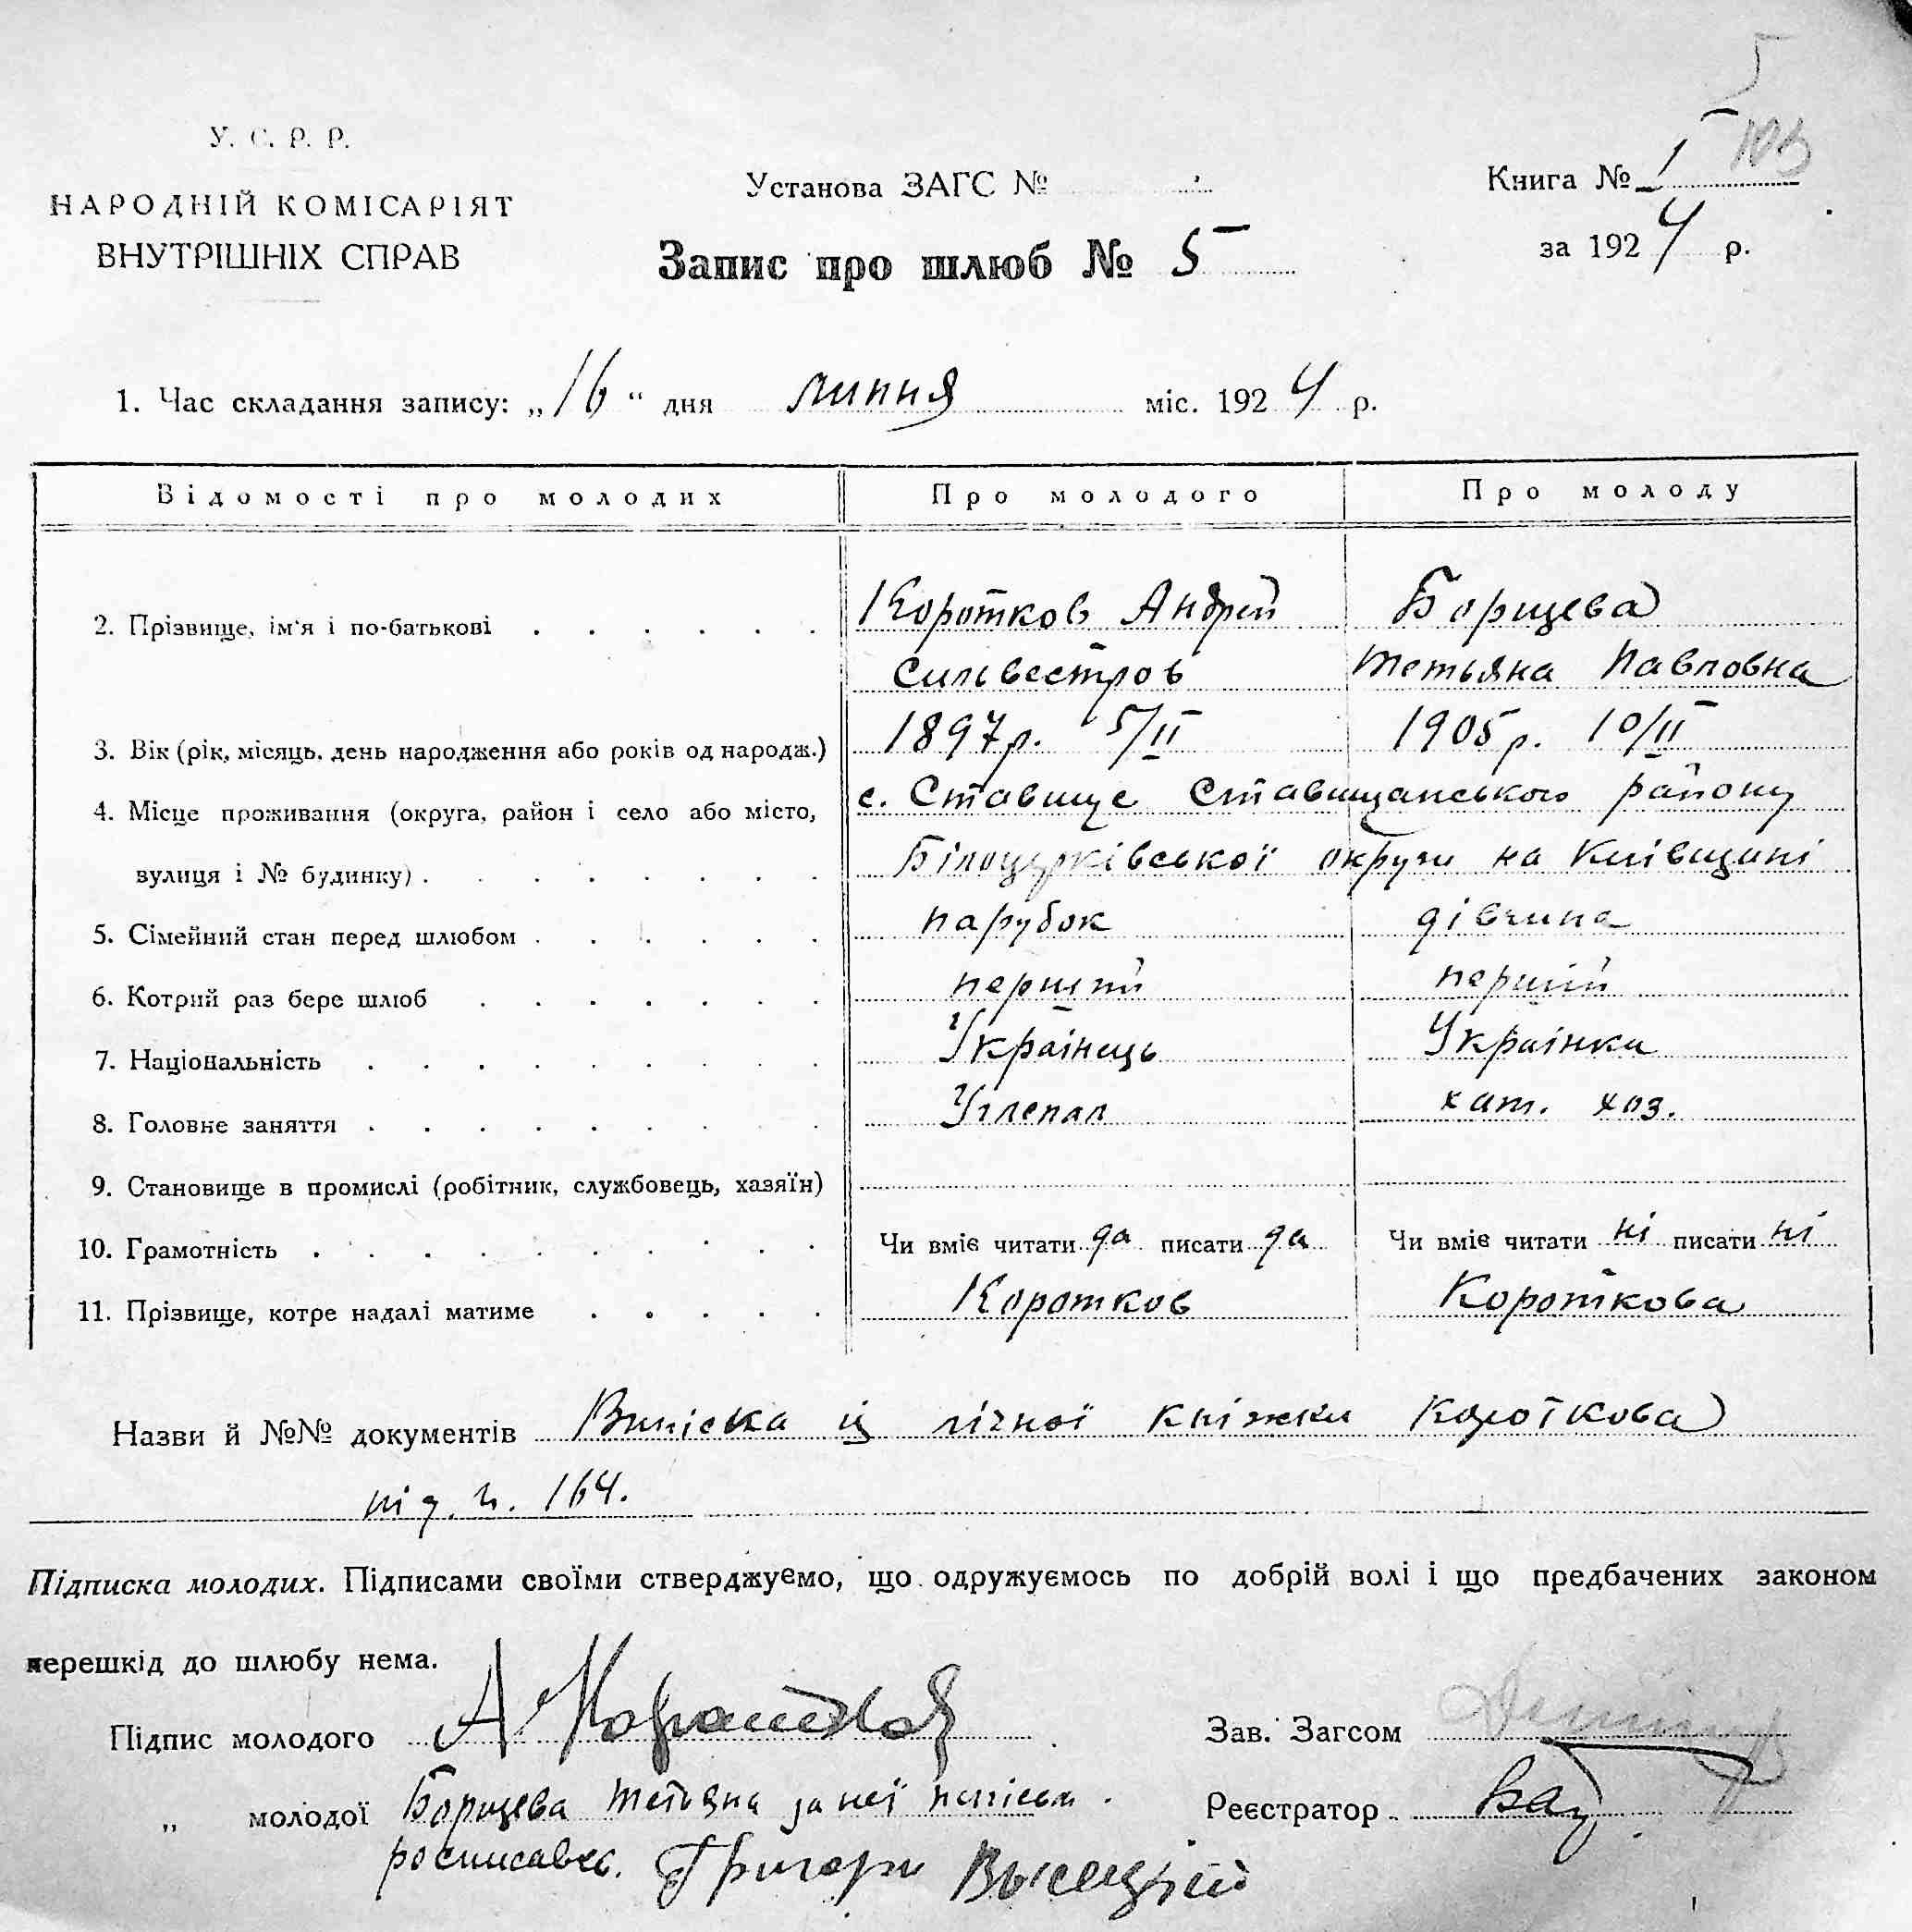 5
103
У. С. Р. Р.
НАРОДНІЙ КОМІСАРІЯТ
ВНУТРІШНІХ СПРАВ
Установа ЗАГС №
Запис про шлюб № 5
Книга № 1
за 1924 р.
1. Час складання запису: „16“ дня липня міс. 1924 р.
Відомості про молодих Про молодого Про молоду
2. Прізвище, ім'я і по-батькові Коротков Андрей Борщева
Сильвестров Тетьяна Павловна
3. Вік (рік, місяць, день народження або років од народж.) 1897р. 5/II 1905р. 10/II
4. Місце проживання (округа, район і село або місто, с. Ставище Ставищанського району
вулиця і № будинку) Білоцерківської округи на Київщині
5. Сімейний стан перед шлюбом парубок дівчина
6. Котрий раз бере шлюб перший перший
7. Національність Українець Українка
8. Головне заняття хат. хоз.
9. Становище в промислі (робітник, службовець, хазяїн)
10. Грамотність Чи вміє читати да писати да Чи вміє читати ні писати ні
11. Прізвище, котре надалі матиме Коротков Короткова
Назви й №№ документів Випіска із лічної кніжки Короткова
під ч. 164.
Підписка молодих. Підписами своїми стверджуємо, що одружуємось по добрій волі і що предбачених законом
перешкід до шлюбу нема.
Підпис молодого А Коротков Зав. Загсом
„ молодої Борщева Тетьяна за неї Реєстратор
росписавсь. Григори Высецкій